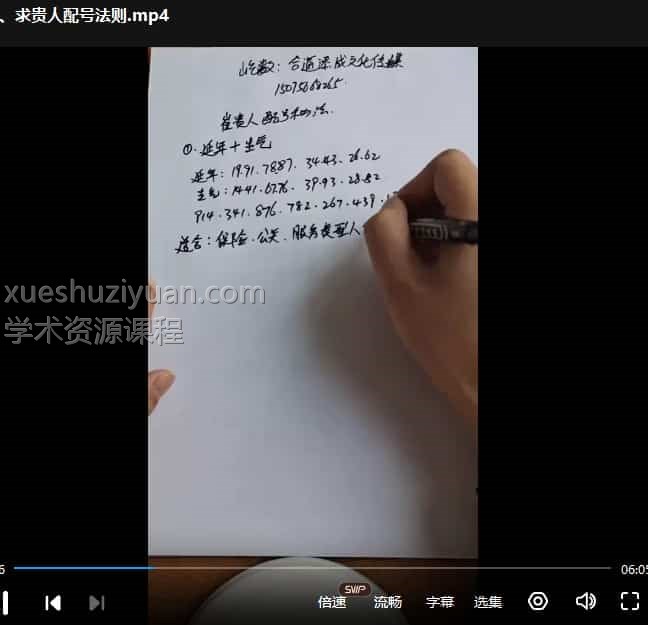 、求贵人配号法则.mp4
崔贵人配号方法.
①.延年+生气
延年:19.91.7887.34.43.26.62
生气:1441.6776.39.93.28.82
914.341.876.782.267.439.
适合:保险.公关.服务类型人
xueshuziyuan.com
学术资源课程
06:05
SVIP
倍速 流畅 字幕 选集